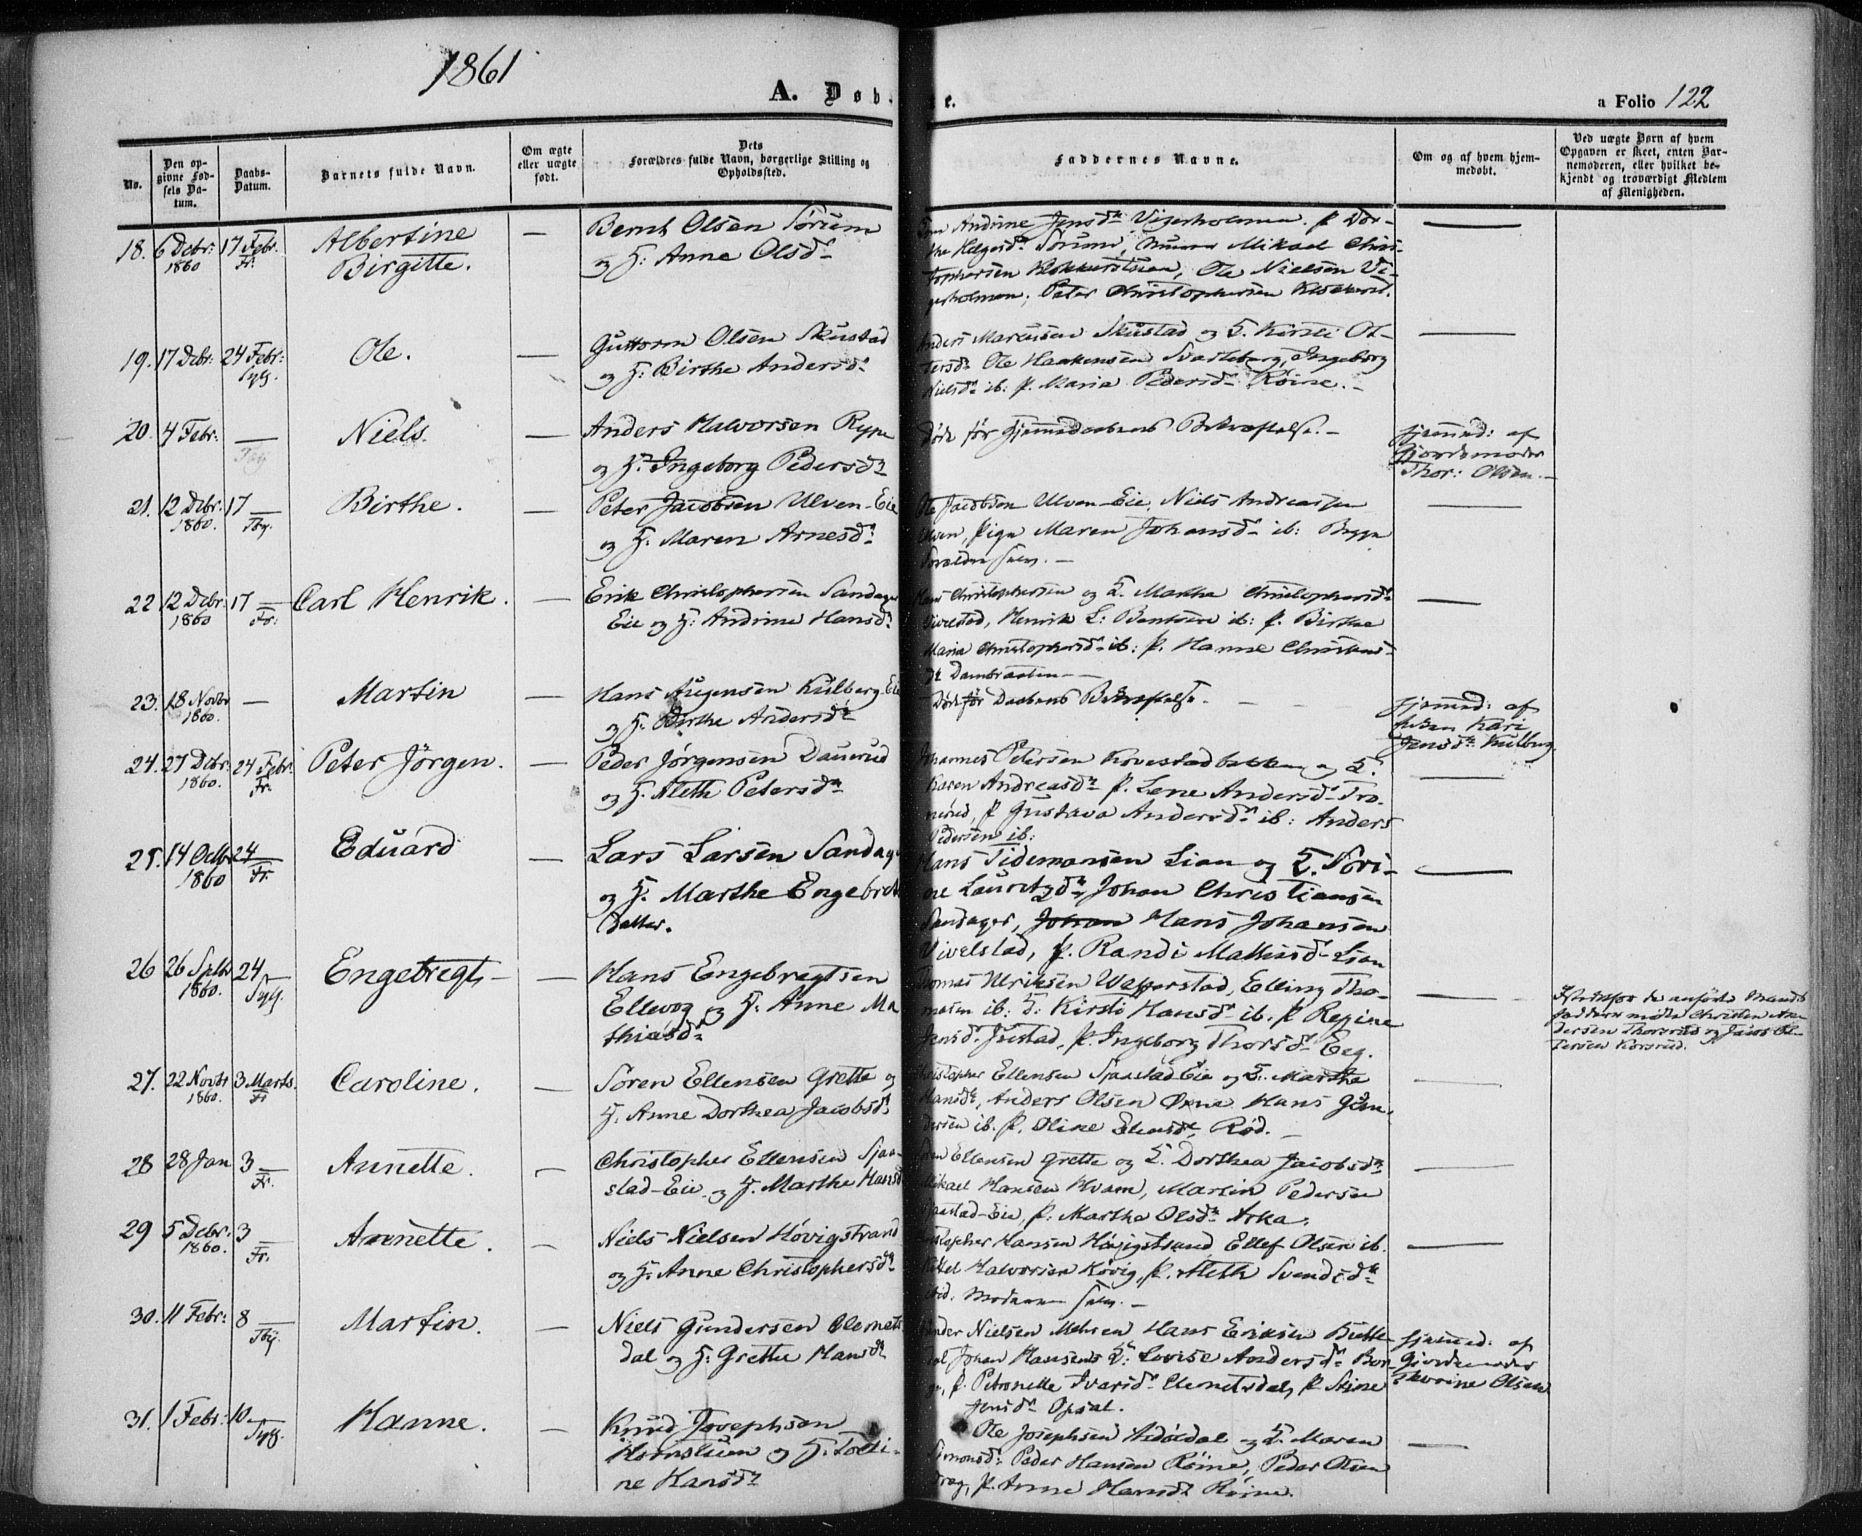 1861
A. Døb- te. a Folio 122
No. Den op- givne Fød- sels Da- tum. Daabs- Datum. Barnets fulde Navn. Om ægte eller uægte født. Dets Forældres fulde Navn, borgerlige Stilling og Opholdssted. Faddernes Navne. Om og af hvem hjem- medøbt. Ved uægte Børn af hvem Opgaven er skeet, enten Bar- nemoderen, eller hvilket be- kjendt og troværdigt Medlem af Menigheden.
18. 6 Debr: 1860 17 Febr. Fr. Albertine Birgitte. — Bernt Olsen Sørum
og H: Anne Olsdr
Andrine Jensdr Vigerholmen. P. Dor-
the Helgersdr Sørum, Mikael Chris-
tophersen, Ole Nielsen Vi-
gerholmen, Peter Christophersen
—
19. 17 Debr: 24 Febr: Sylg. Ole. — Guttorm Olsen Skustad
og H: Birthe Andersdr
Anders Marcussen Skustad og H. Kirsti Ol-
Ole Haakensen Svarteberg, Ingeborg
Nielsdr ib: P. Maria Pedersdr Røine. -
—
20. 4 Febr: — Niels. — Anders Halvorsen Rype
og Hr Ingeborg Pedersdr
Døde før Hjemmedaabens Bekræftelse. -
Hjemmed: af
Gjordemoder
Thor: Olsen. -
21. 12 Debr: 1860. 17 — Birthe. — Peter Jacobsen Ulven-Eie
og H. Maren Arnesdr
Ole Jacobsen Ulven-Eie, Niels Andreassen
Ulven, Pige Maren Johansdr ib:
Forældre selv. -
—
22 12 Debr: 1860 17 — Fr. Carl Henrik. — Erik Christophersen Sandager
Eie og H: Andrine Hansdr
Hans Christophersen og H. Marthe Christophersdr
Vivelstad, Henrik L: Bentsen ib: P. Birthe
Maria Christophersdr ib: P. Hanne Christens-
dr Dambraaten -
—
23. 18 Novbr 1860. — Martin — Hans Kulberg Eie
og H: Birthe Andersdr
Døde før Daabens Bekræftelse. -
Hjemmed: af
Kari
Jensdr Kulberg
24. 27 Debr: 1860. 24 Febr. Fr. Peter Jörgen. — Peder Jörgensen Dauerud
og H. Aleth Petersdr
Johannes Petersen Hovestadbakken og H.
Karen Andreasdr P. Lene Andersdr Tro-
P Gustava Andersdr ib: Anders
Pedersen ib:
—
25. 14 Octbr 1860 24 — Fr. Eduard — Lars Larsen Sandager
og H. Marthe Engebrets
Datter.
Hans Tidemansen Lian og H. Sori-
ne Lauritzdr, Johan Christiansen
Sandager, Johan Hans Johansen
Vivelstad, P. Randi Mathisdr Lian
—
26 26 Septbr 1860. 24 — Sylg. Engebregt — — Hans Engebregtsen
Ellevog og H: Anne Ma
thiasdr
Thomas Ulriksen Wefferstad, Elling Tho-
masen ib: H: Kirsti Hansdr ib. P Regine
Jensdr Justad, P. Ingeborg Thorsdr Eeg.
—
Istedetfor de anførte Mands
faddere mødte Christen An
dersen Thorsrud og Jacob
Korsrud.
27. 22 Novbr 1860. 3 Marts. Fr Caroline. — Søren Ellensen Grette og
H. Anne Dorthea Jacobsdr
Christopher Ellensen Sjaastad Eie og H. Marthe
Hansdr, Anders Olsen Hans Gun-
dersen ib. P. Oline Røed. -
—
28 28 Jan 3 — Fr. Annette. — Christopher Ellensen Sjaa-
stad-Eie og H. Marthe Hansd
Søren Ellensen Grette og H. Dorthea Jacobsdr
Mikael Hansen Hvam, Martin Pedersen
Sjaastad-Eie, P. Marthe Olsdr Aska.
—
29 5 Debr: 1860. 3 — Fr. Annette. — Niels Nielsen Høvigstrand
og H: Anne Christophersdr
Christopher Hansen Høvigstrand, Ellef Olsen ib.
Halvorsen Høvig, P. Aleth Svendsdr
Moderen selv. -
—
30. 11 Febr: 8 — Martin. — Niels Gundersen Clemets
dal og H: Grethe Hansdr
Gunder Nielsen Hans Eriksen
Johan Hansens H: Lovise Andersdr Bor-
P. Petronelle Ivarsdr Clemetsdal, P Stine
Jensdr Opsal.
Hjemmed: af
Gjordemoder
Olsen
31. 1 Febr: 10 — Sylg. Hanne. — Knud Josephsen
Hornsluen og H. Totti-
ne Hansdr
Ole Josephsen og H. Maren
Simonsdr Peder Hansen Røine, Peder Olsen
P. Anne Hansdr Røine.
—